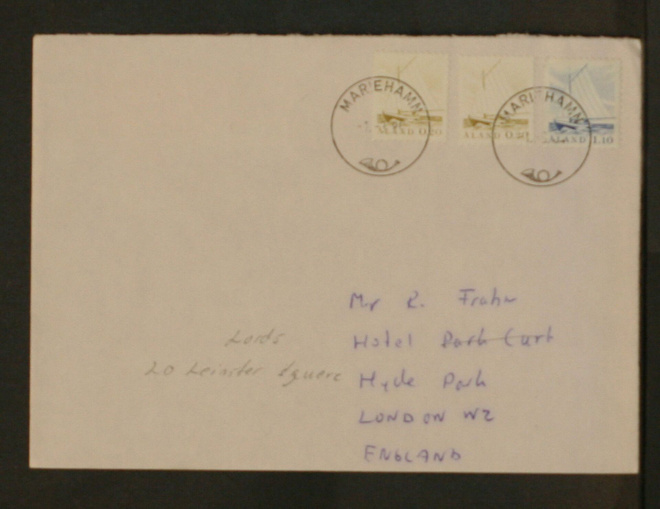 MARIEHAMN
ÅLAND 0.20
ÅLAND 0.20
MARIEHAMN
ÅLAND 1.10
Mr R.
Hotel Park Curt
Lords
20 Leinster Square
Hyde Park
LONDON W2
ENGLAND